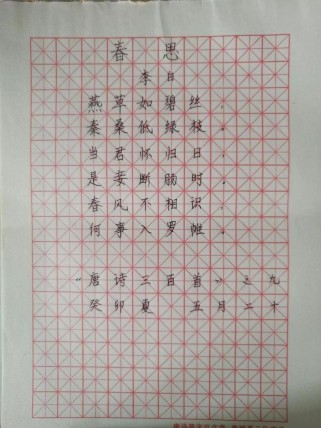 春思
李白
燕草如碧丝，
秦桑低绿枝。
当君怀归日，
是妾断肠时。
春风不相识，
何事入罗帷。
“唐诗三百首”之九
癸卯夏 五月二十